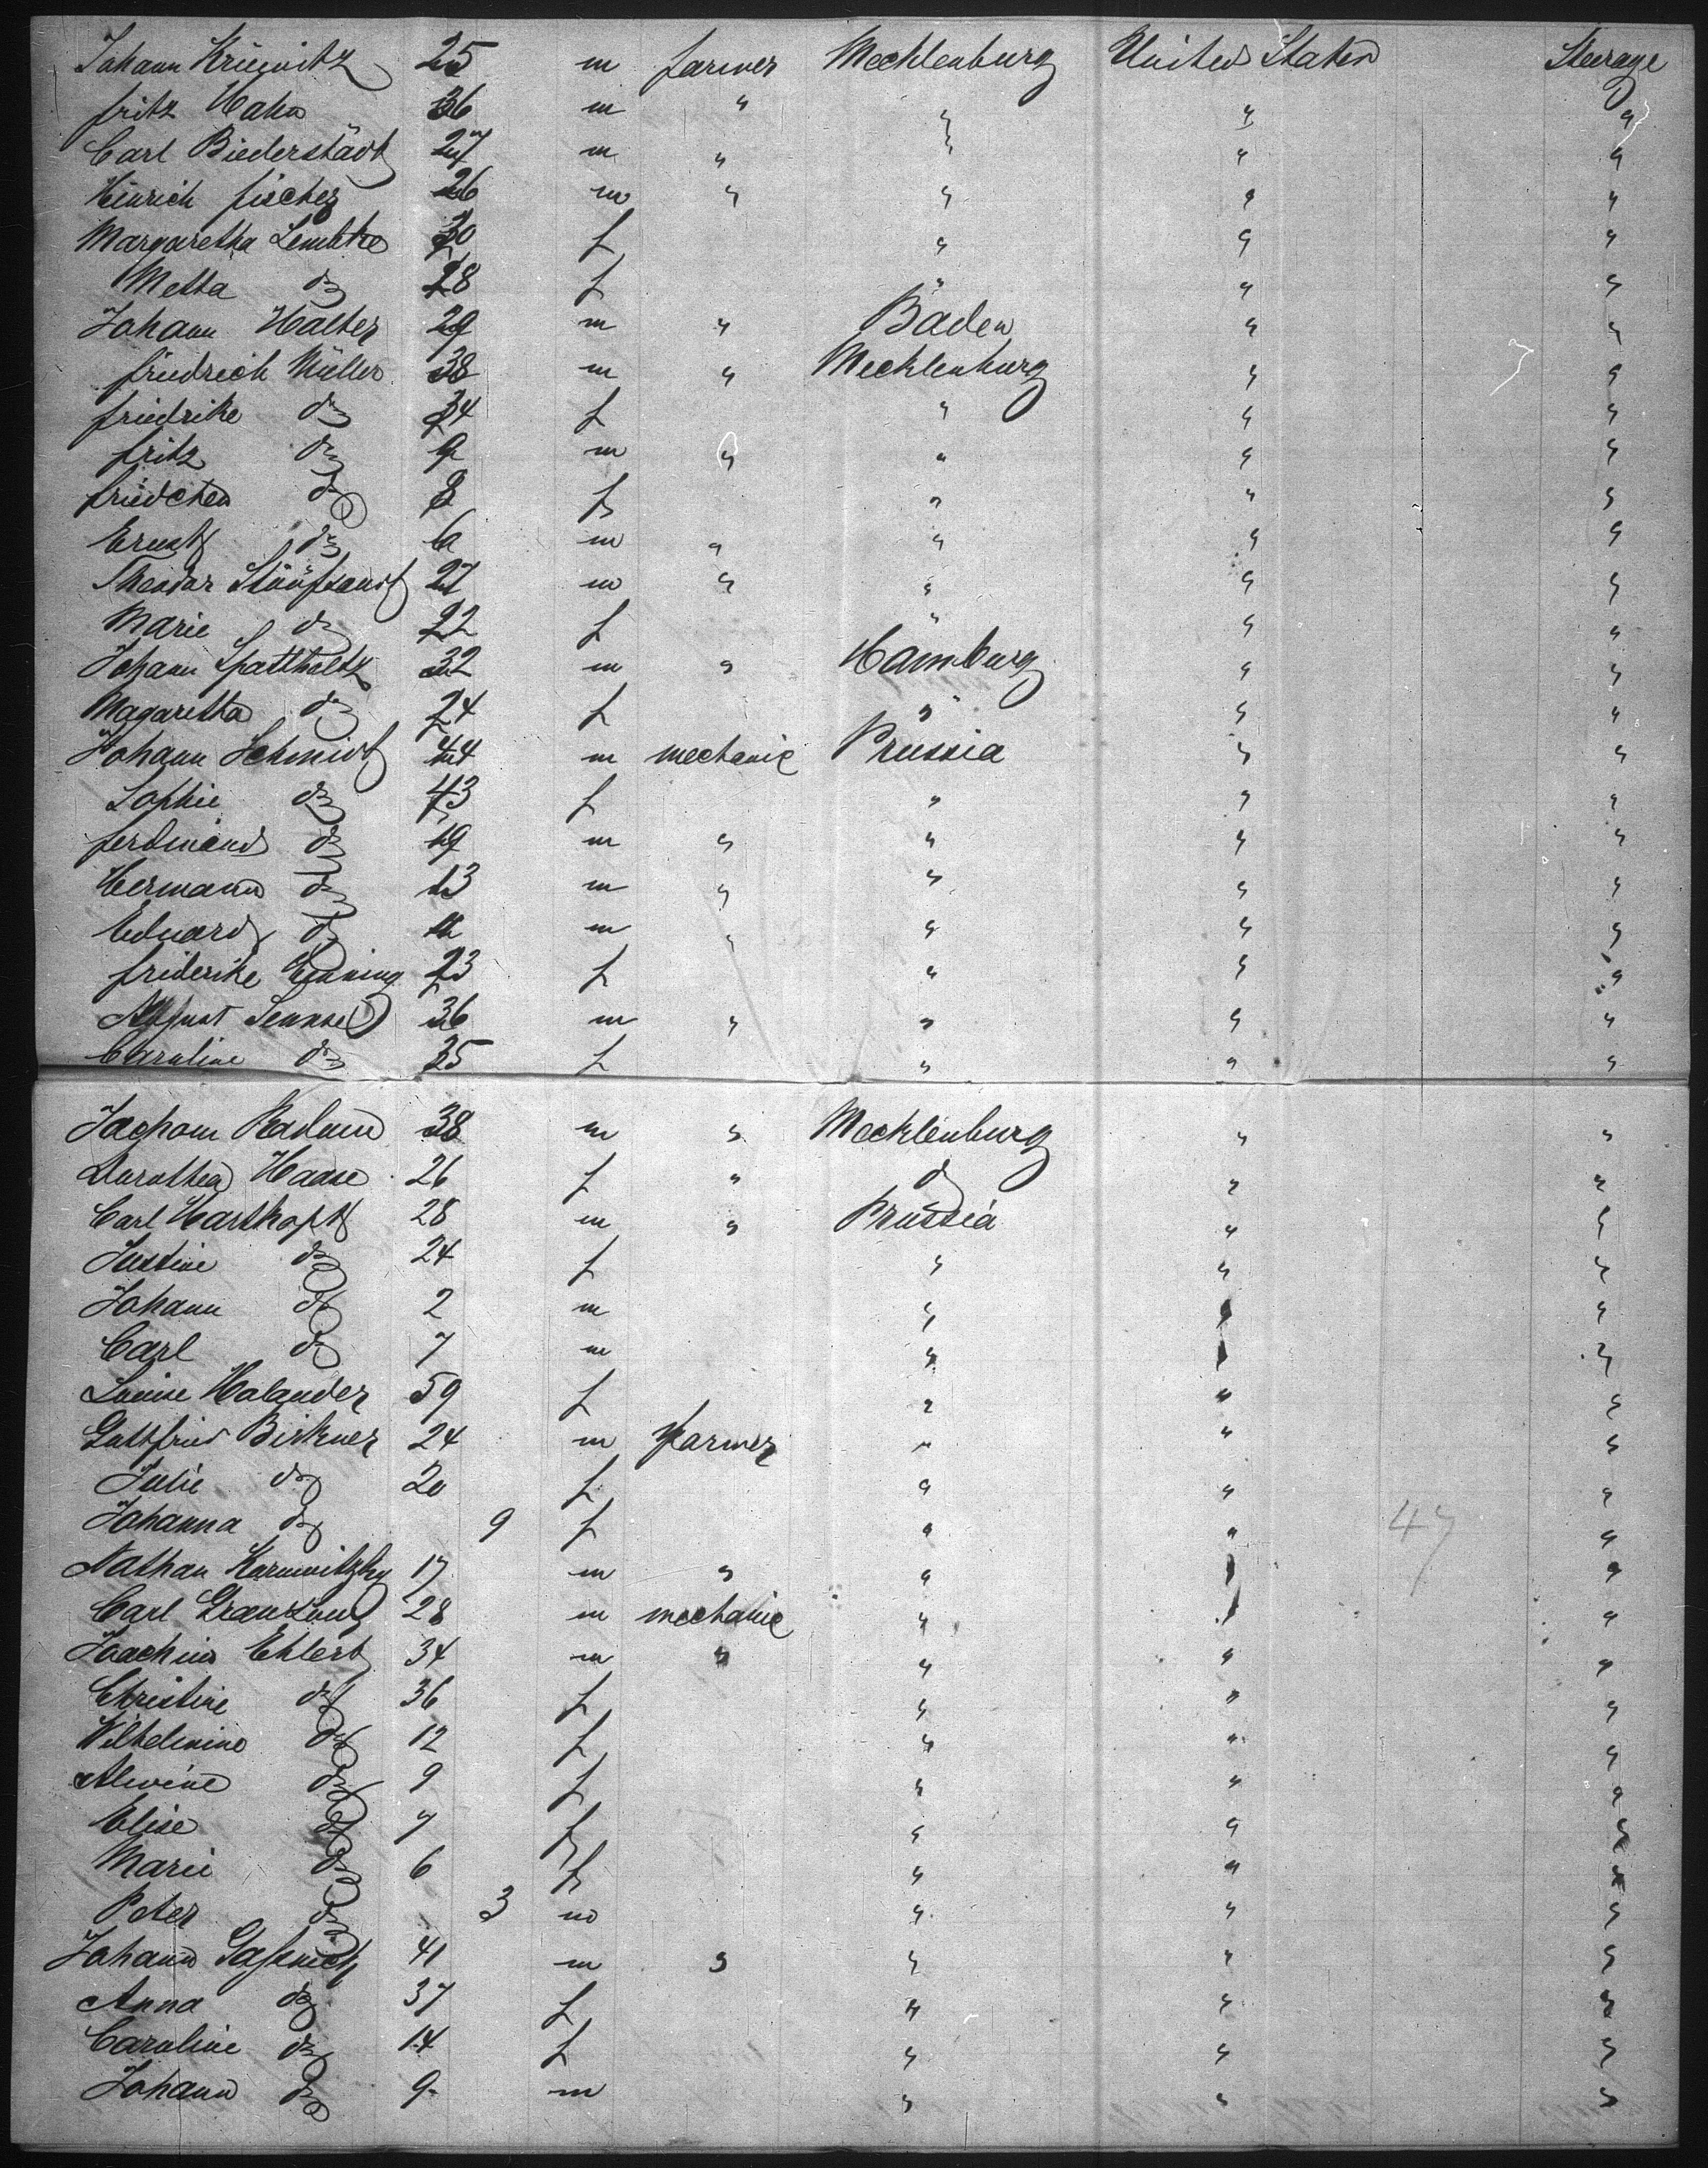 Johann Kriewitz 25 m farmer Mecklenburg United States Steerage
fritz Hahn 36 m " " " "
Carl Biederstädt 27 m " " " "
Hinrich fischer 26 m " " " "
Margaretha Lembke 30 f " " "
Metta do 28 f " " "
Johann Halter 29 m " Baden " "
friedrich Müller 38 m " Mecklenburg " "
friedrike do 34 f " " "
fritz do 9 m " " " "
friedchen do 8 f " " "
Ernst do 6 m " " " "
Theodor 27 m " " " "
Marie do 22 f " " "
Johann Spattholtz 32 m " Hamburg " "
Magaretta do 24 f " " "
Johann Schmidt 44 m mechanic Prussia " "
Sophie do 43 f " " "
ferdinand do 19 m " " " "
Hermann do 13 m " " " "
Eduard do 11 m " " " "
friderike Henning 23 f " " "
August 36 m " " " "
Caroline do 35 f " " "
Jochom Radum 38 m " Mecklenburg " "
Dorothea Haase 26 f " do " "
Carl Harthopf 28 m " Prussia " "
Justine do 24 f " " "
Johann do 2 m " " "
Carl do 7 m " " "
Louise Halander 59 f " " "
Gottfried Birkner 24 m farmer " " "
Julie do 20 f " " "
Johanna do 9 f " " "
47
Nathan 17 m " " " "
Carl 28 m mechanic " " "
Joachim Ehlert 34 m " " " "
Christine do 36 f " " "
Wilhelmine do 12 f " " "
Alwine do 9 f " " "
Elise do 7 f " " "
Marie do 6 f " " "
Peter do 3 m " " "
Johann 41 m " " " "
Anna do 37 f " " "
Caroline do 14 f " " "
Johann do 9 m " " "